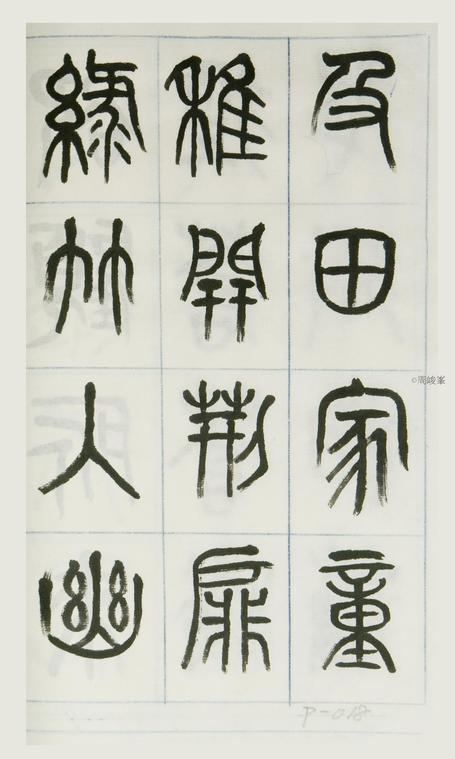 及田家童
稚開荊扉
綠竹入幽
©周峻峯
P-018